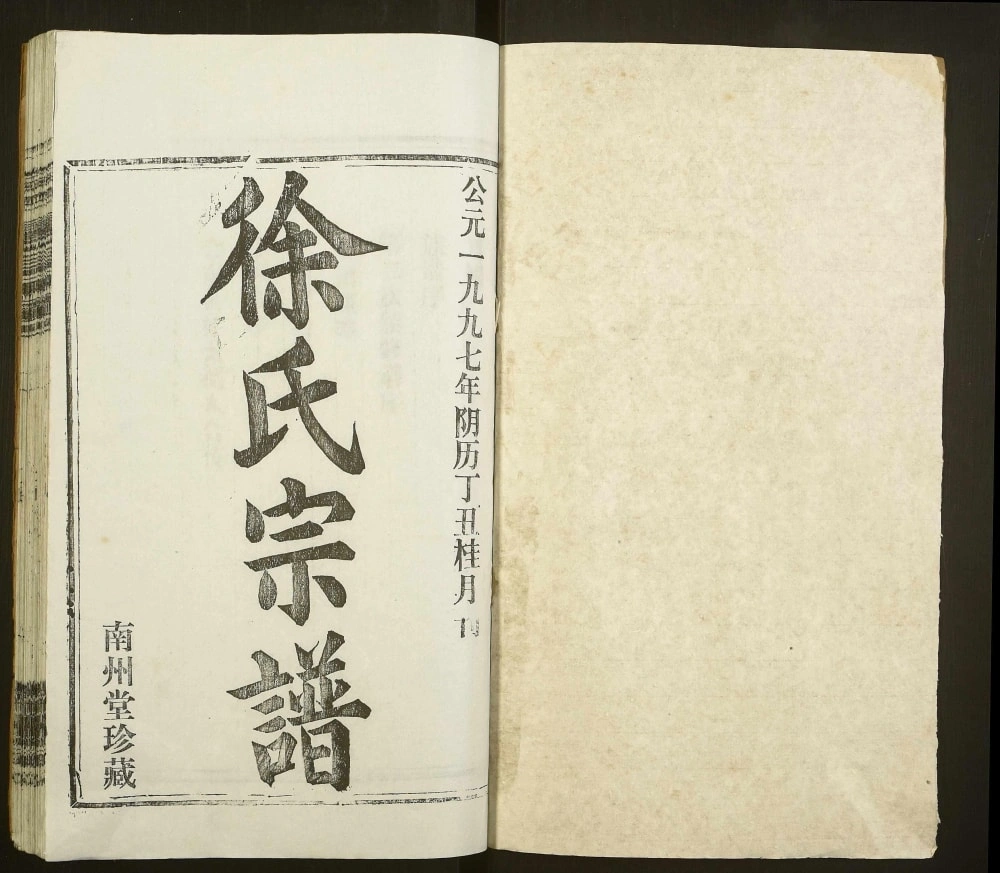 公元一九九七年阴历丁丑桂月刊
徐氏宗譜
南州堂珍藏